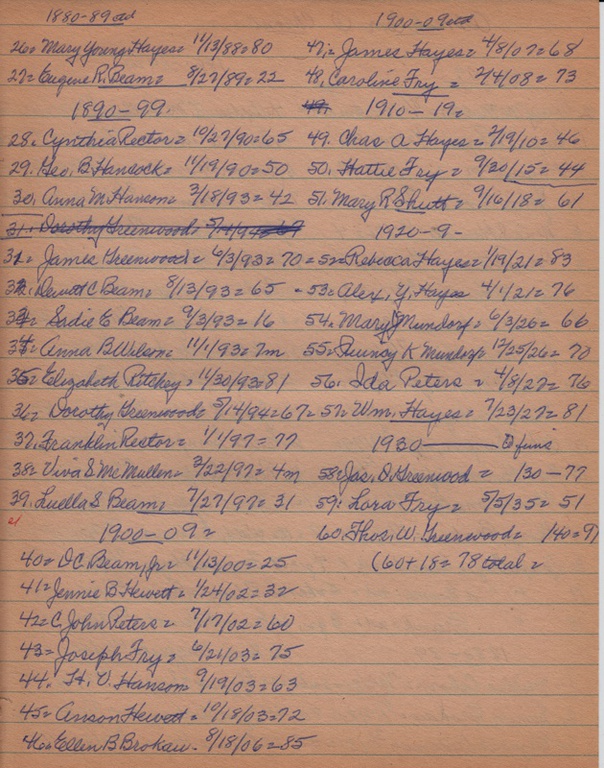 1880-89ctd
26= Mary Young Hayes= 11/13/88=80
27= Eugene R. Beam= 8/27/89=22
1890-99.
28. Cynthia Rector= 10/27/90=65
29. Geo. B Hancock= 11/19/90=50
30. Anna M. Hanson= 3/18/93=42
31. Dorothy Greenwood= 5/14/94=67
31= James Greenwood= 6/3/93=70=
32. Dewitt C Beam= 8/13/93=65
33= Sadie E Beam= 9/3/93=16
34= Anna B Wilson= 11/1/93=7m
35= Elizabeth Ritchey= 11/30/93=81
36= Dorothy Greenwood= 5/14/94=67=
37. Franklin Rector= 1/1/97=77
38= Viva S McMullen= 3/22/97=4m
39. Luella S Beam= 7/27/97=31
21
1900-09=
40= D.C. Beam, Jr= 11/13/00=25
41= Jennie B Hewett= 1/24/02=32
42= C. John Peters= 7/17/02=60
43= Joseph Fry= 6/21/03=75
44. H. V. Hanson 9/19/03=63
45= Anson Hewett= 10/18/03=72
46= Ellen B Brokaw- 8/18/06=85
1900-09ctd
47,= James Hayes= 4/8/07=68
48, Caroline Fry = 2/4/08=73
49. 1910-19=
49. Chas A Hayes= 2/19/10=46
50. Hattie Fry= 9/30/15=44
51. Mary R Shutt= 9/16/18= 61
1920-9-
52= Rebecca Hayes= 1/19/21=83
-53= Alex, Y, Hayes 4/1/21=76
54. Mary J Mundorf= 6/3/26=66
55= Quincy K Mundorf= 12/25/26=70
56. Ida Peters = 4/8/27=76
57= Wm. Hayes= 7/23/27=81
1930
58= Jas. D. Greenwood= 130-77
59. Lora Fry= 5/5/35=51
60. Thos. W. Greenwood= 140=91
(60+18=78 total=